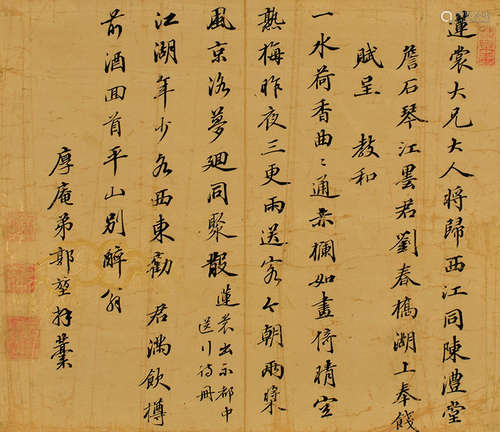 蓮裳大兄大人將歸西江同陳澧堂
詹石琴江曇君劉春橋湖上奉餞
賦呈 教和
一水荷香曲々通赤欄如畫倚晴空
熟梅昨夜三更雨送客今朝兩槳
風京洛夢迴同聚散蓮裳出示都中送行詩冊
江湖年少各西東勸君滿飲樽
前酒回首平山別醉翁
厚庵弟郭堃拜藁